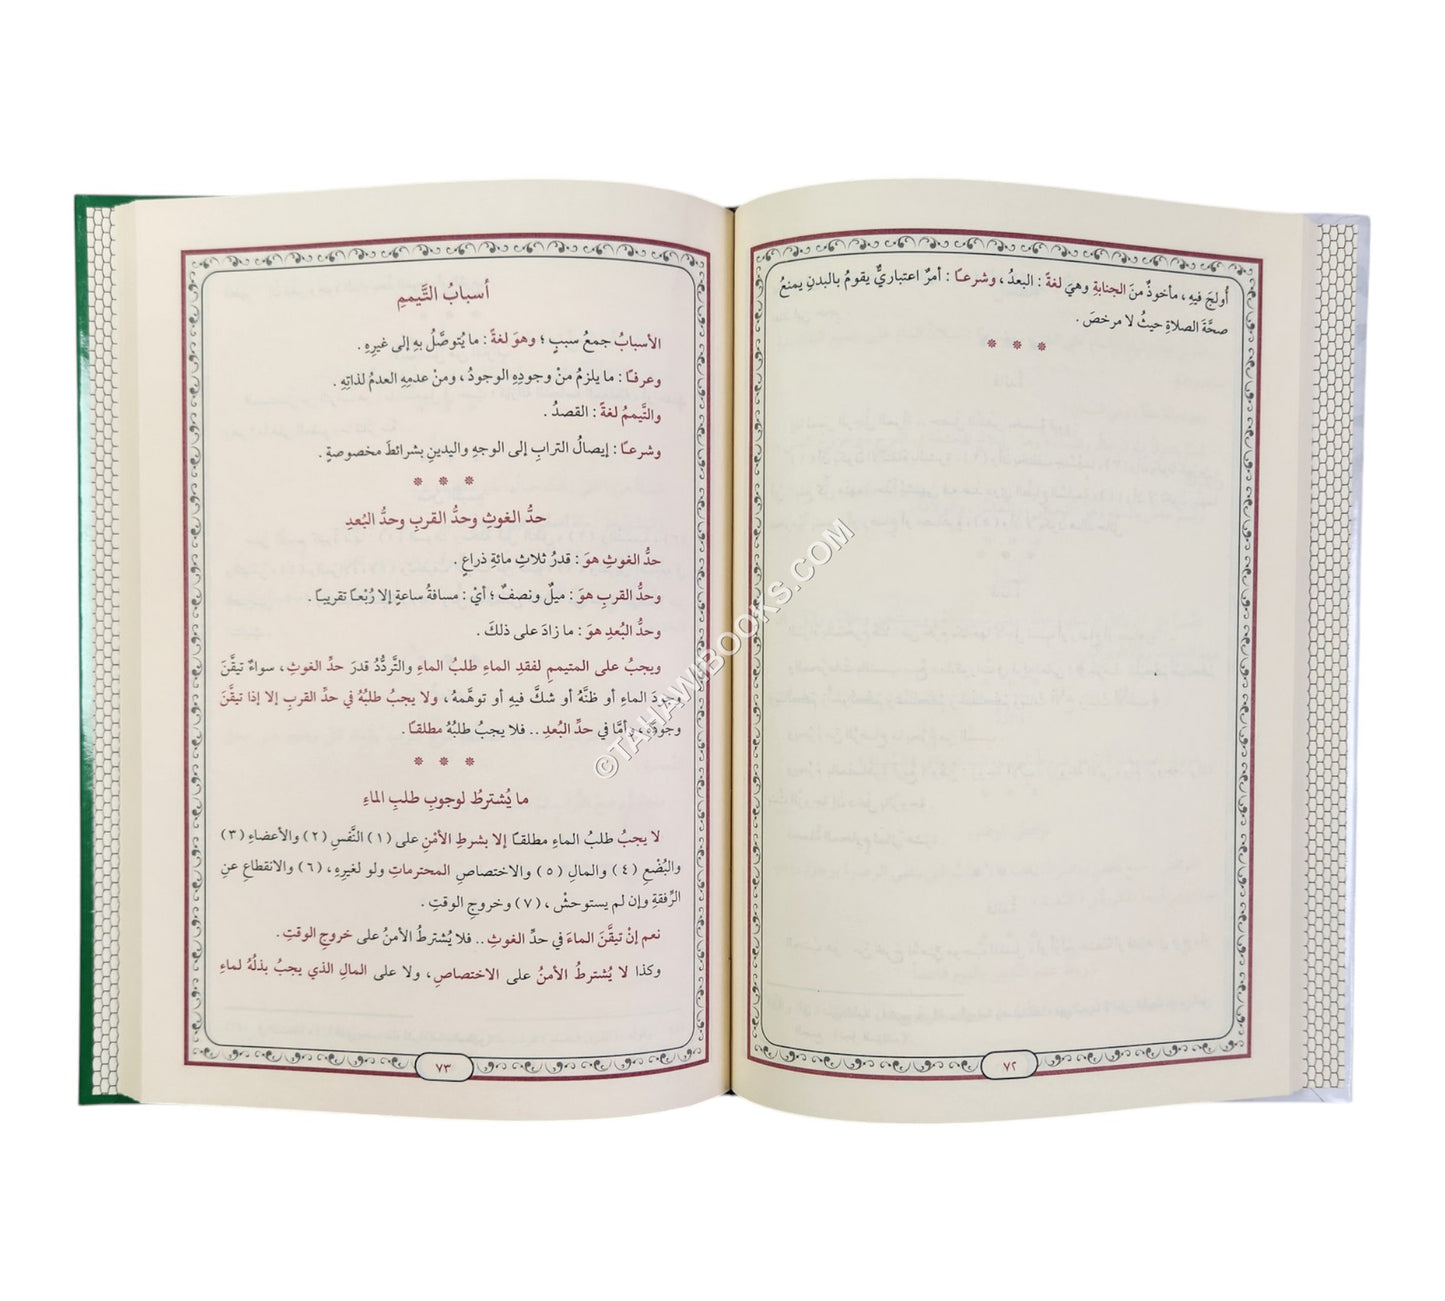 أُولجَ فيهِ ، مأخوذٌ منَ الجنابةِ وهيَ لغةً : البعدُ ، وشرعـًا : أمرٌ اعتباريٌّ يقومُ بالبدنِ يمنعُ
صحَّةَ الصلاةِ حيثُ لا مرخصَ .
٧٢
أسبابُ التَّيممِ
الأسبابُ جمعُ سببٍ ؛ وهوَ لغةً : ما يُتوصَّلُ بهِ إلى غيرِهِ .
وعرفـًا : ما يلزمُ منْ وجودِهِ الوجودُ ، ومنْ عدمِهِ العدمُ لذاتِهِ .
والتَّيممُ لغةً : القصدُ .
وشرعـًا : إيصالُ الترابِ إلى الوجهِ واليدينِ بشرائطَ مخصوصةٍ .
حدُّ الغوثِ وحدُّ القربِ وحدُّ البُعدِ
حدُّ الغوثِ هوَ : قدرُ ثلاثِ مائةِ ذراعٍ .
وحدُّ القربِ هوَ : ميلٌ ونصفٌ ؛ أيْ : مسافةُ ساعةٍ إلا رُبْعـًا تقريبـًا .
وحدُّ البُعدِ هوَ : ما زادَ على ذلكَ .
ويجبُ على المتيممِ لفقدِ الماءِ طلبُ الماءِ والتَّردُّدُ قدرَ حدِّ الغوثِ ، سواءٌ تيقَّنَ
وجودَ الماءِ أو ظنَّهُ أو شكَّ فيهِ أو توهَّمهُ ، ولا يجبُ طلبُهُ في حدِّ القربِ إلا إذا تيقَّنَ
وجودَهُ ، وأمَّا في حدِّ البُعدِ .. فلا يجبُ طلبُهُ مطلقـًا .
ما يُشترطُ لوجوبِ طلبِ الماءِ
لا يجبُ طلبُ الماءِ مطلقـًا إلا بشرطِ الأمْنِ على ( ١ ) النَّفسِ ( ٢ ) والأعضاءِ ( ٣ )
والبُضْعِ ( ٤ ) والمالِ ( ٥ ) والاختصاصِ المحترماتِ ولو لغيرِهِ ، ( ٦ ) والانقطاعِ عنِ
الرِّفقةِ وإن لم يستوحشْ ، ( ٧ ) وخروجِ الوقتِ .
نعم إنْ تيقَّنَ الماءَ في حدِّ الغوثِ .. فلا يُشترطُ الأمنُ على خروجِ الوقتِ .
وكذا لا يُشترطُ الأمنُ على الاختصاصِ ، ولا على المالِ الذي يجبُ بذلُهُ لماءِ
٧٣
©TAHAWIBOOKS.COM